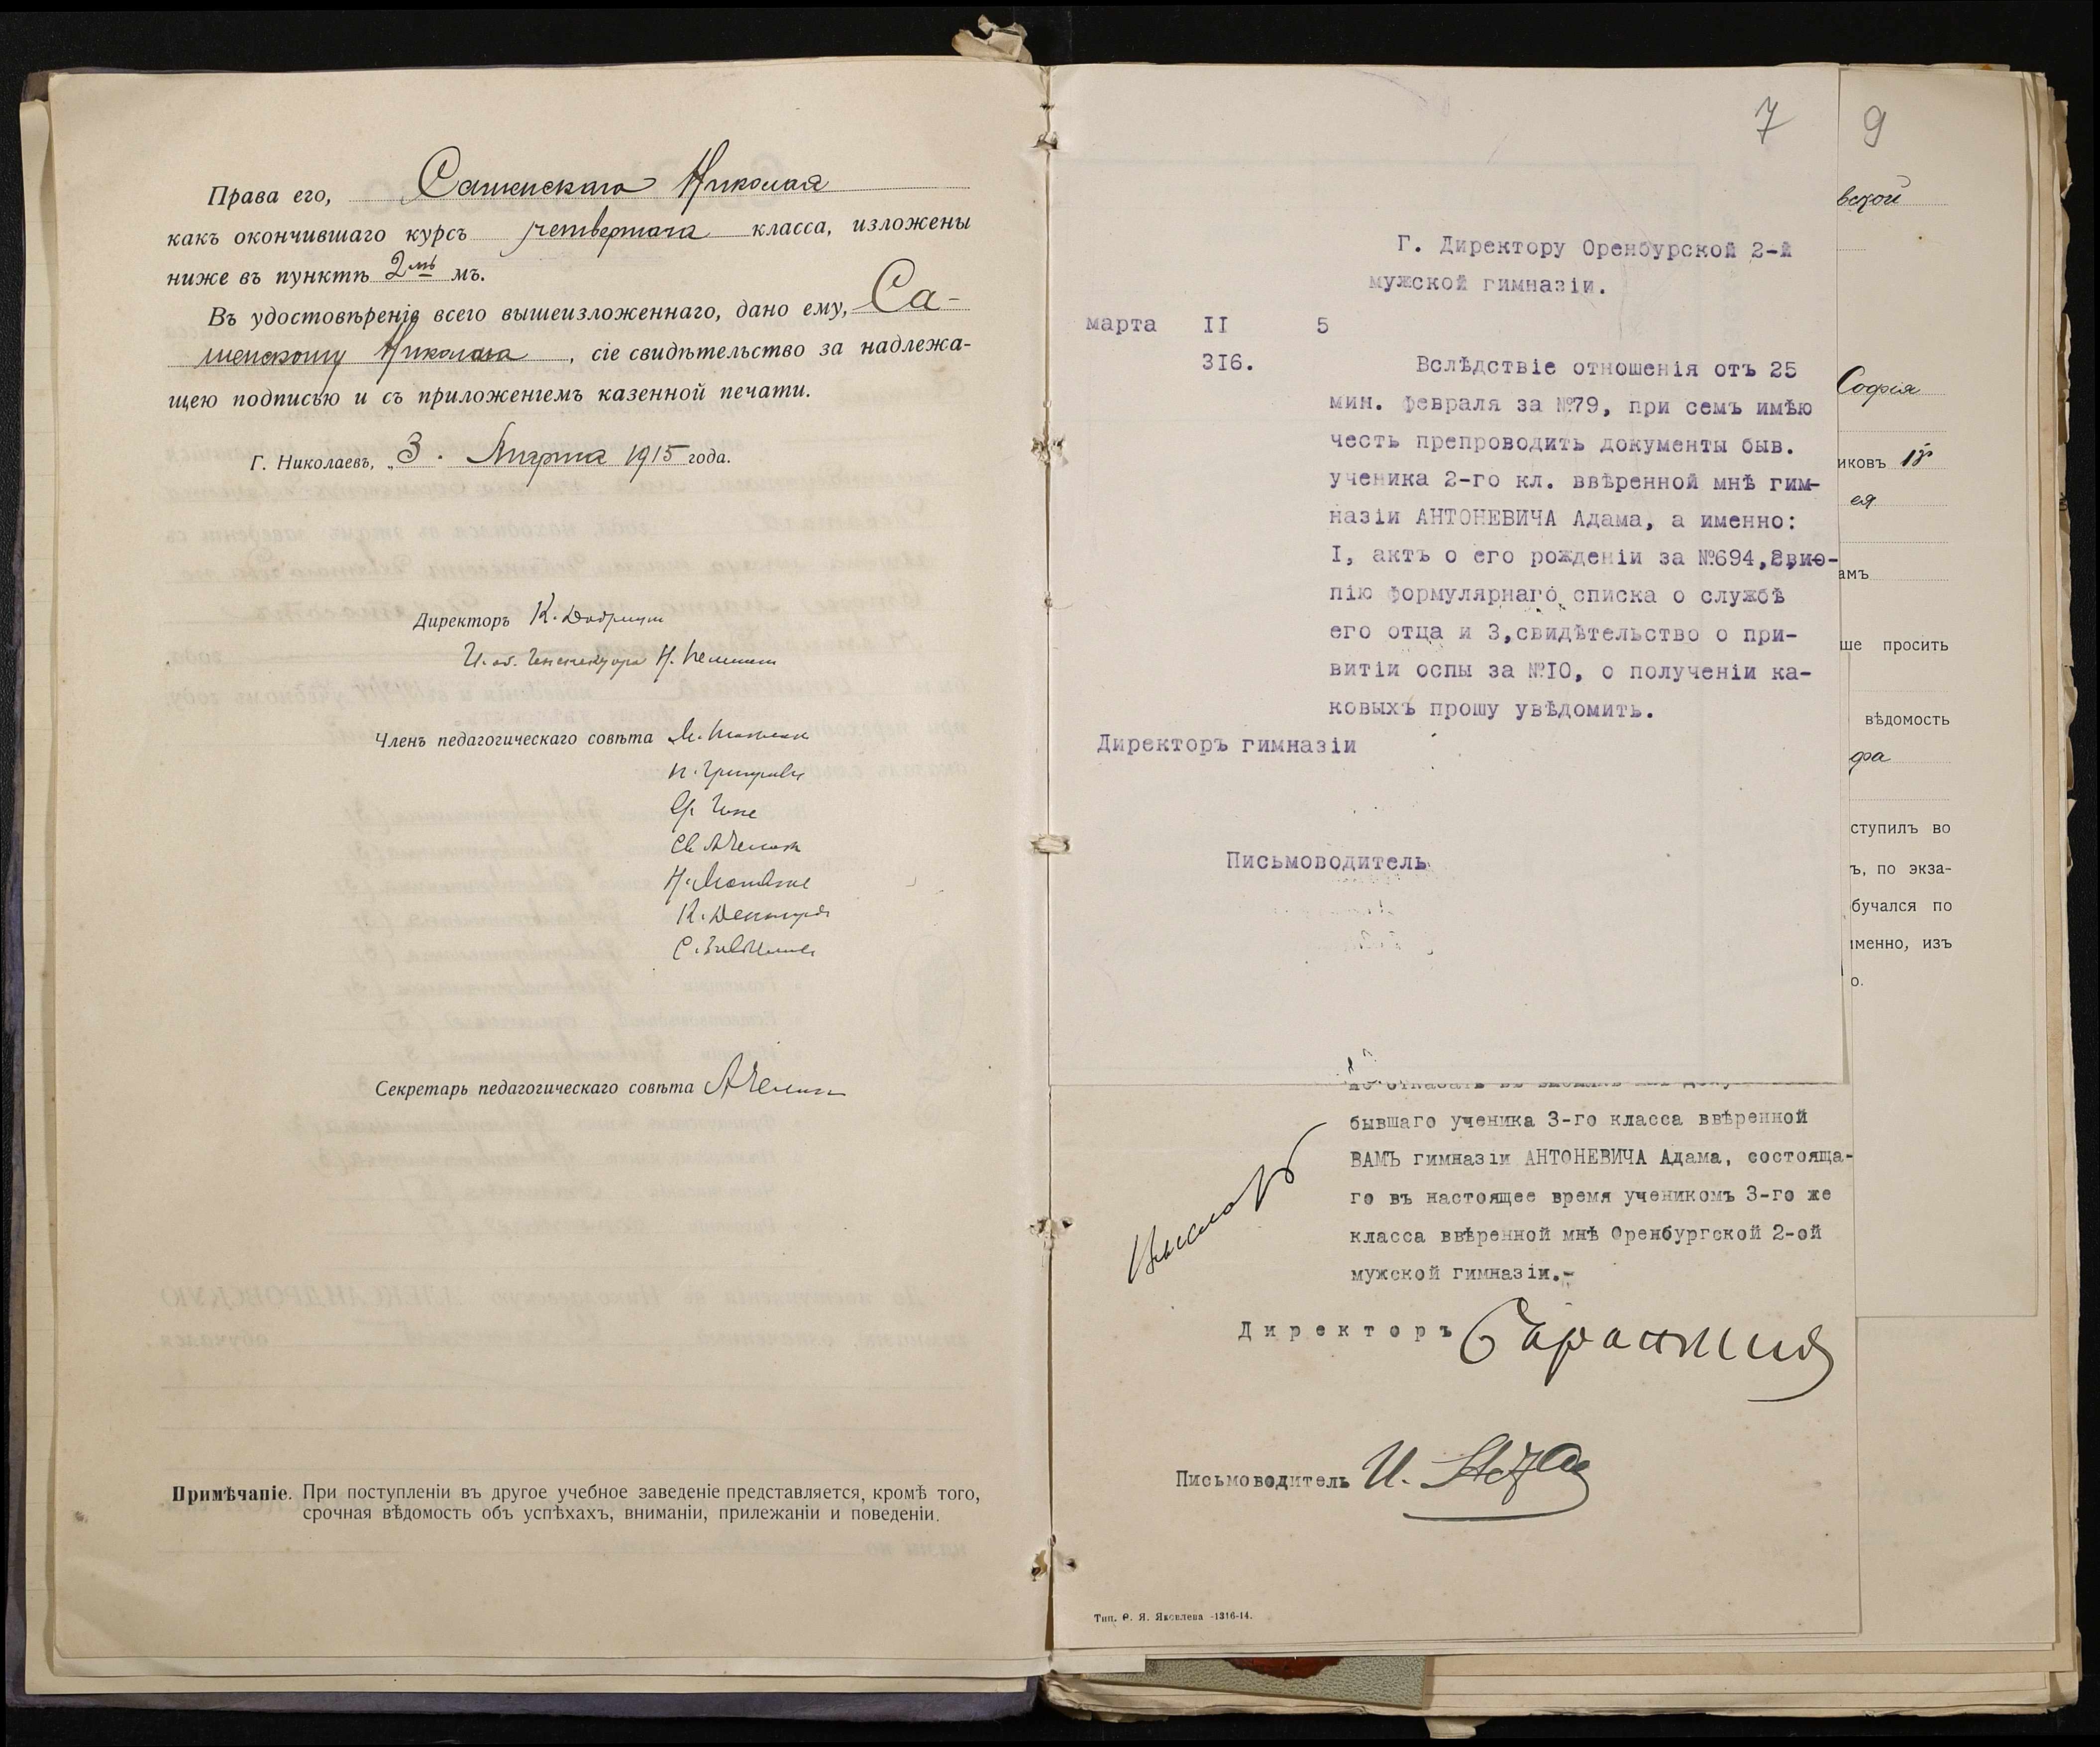 Права его, Сашенскаго Николая
какъ окончившаго курсъ четвертаго класса, изложены
ниже въ пунктѣ 2мъ мъ.
Въ удостовѣреніе всего вышеизложеннаго, дано ему, Са-
шенскому Николаю, сіе свидѣтельство за надлежа-
щею подписью и съ приложеніемъ казенной печати.
Г. Николаевъ, „3. Марта 1915 года.
Директоръ К.
И. об. Инспектора Н.
Членъ педагогическаго совѣта
Секретарь педагогическаго совѣта
Примѣчаніе. При поступленіи въ другое учебное заведеніе представляется, кромѣ того,
срочная вѣдомость объ успѣхахъ, вниманіи, прилежаніи и поведеніи.
7
Г. Директору Оренбурской 2-й
мужской гимназіи.
марта II 5
3I6.
Вслѣдствіе отношенія отъ 25
мин. февраля за №79, при семъ имѣю
честь препроводить документы быв.
ученика 2-го кл. ввѣренной мнѣ гим-
назіи АНТОНЕВИЧА Адама, а именно:
I, актъ о его рожденіи за №694,
пію формулярнаго списка о службѣ
его отца и 3,свидѣтельство о при-
витіи оспы за №I0, о полученіи ка-
ковыхъ прошу увѣдомить.
Директоръ гимназіи
Письмоводитель
бывшаго ученика 3-го класса ввѣренной
ВАМЪ гимназіи АНТОНЕВИЧА Адама, состояща-
го въ настоящее время ученикомъ 3-го же
класса ввѣренной мнѣ Оренбургской 2-ой
мужской гимназіи.-
Директоръ
Письмоводитель И.
Тип. Ѳ. Я. Яковлева -1316-14.
9
вской
Софія
иковъ
ея
амъ
ше просить
вѣдомость
фа
ступилъ во
ъ, по экза-
бучался по
именно, изъ
о.